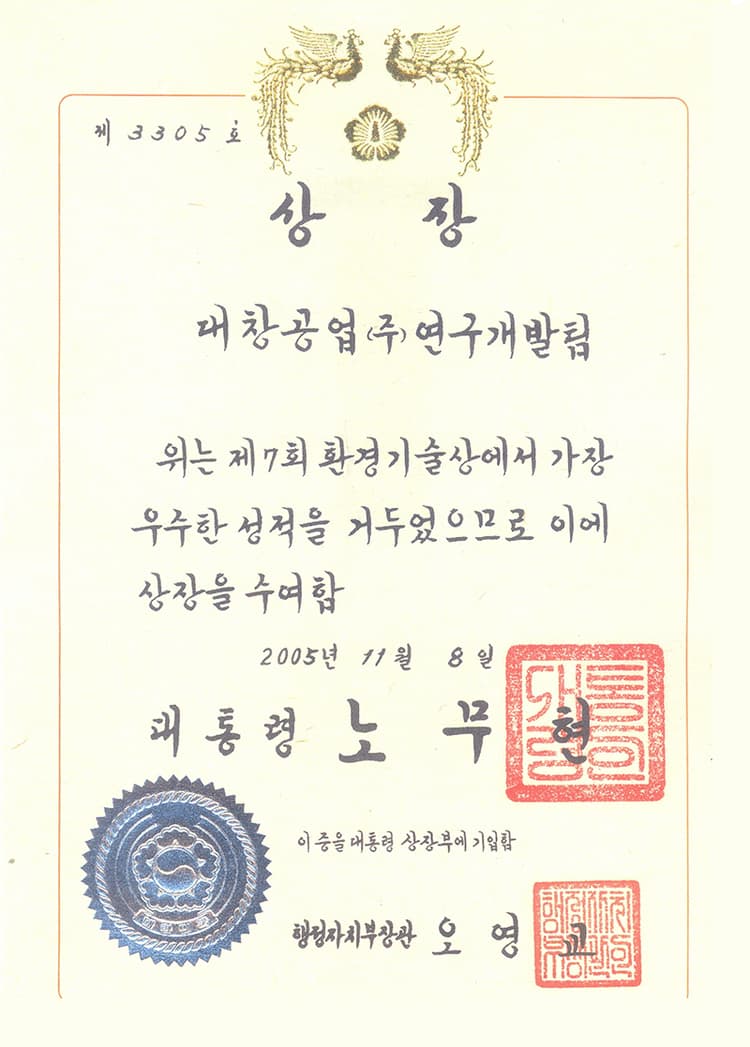 제 3305 호
상 장
대창공업(주)연구개발팀
위는 제7회 환경기술상에서 가장
우수한 성적을 거두었으므로 이에
상장을 수여합
2005년 11월 8일
대통령 노무현
이 증을 대통령 상장부에 기입합
행정자치부장관 오영교